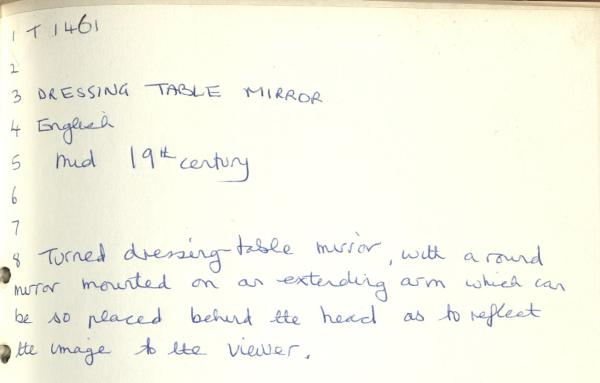 1 T 1461
2
3 DRESSING TABLE MIRROR
4 English
5 Mid 19th century
6
7
8 Turned dressing-table mirror, with a round
mirror mounted on an extending arm which can
be so placed behind the head as to reflect
the image to the viewer.